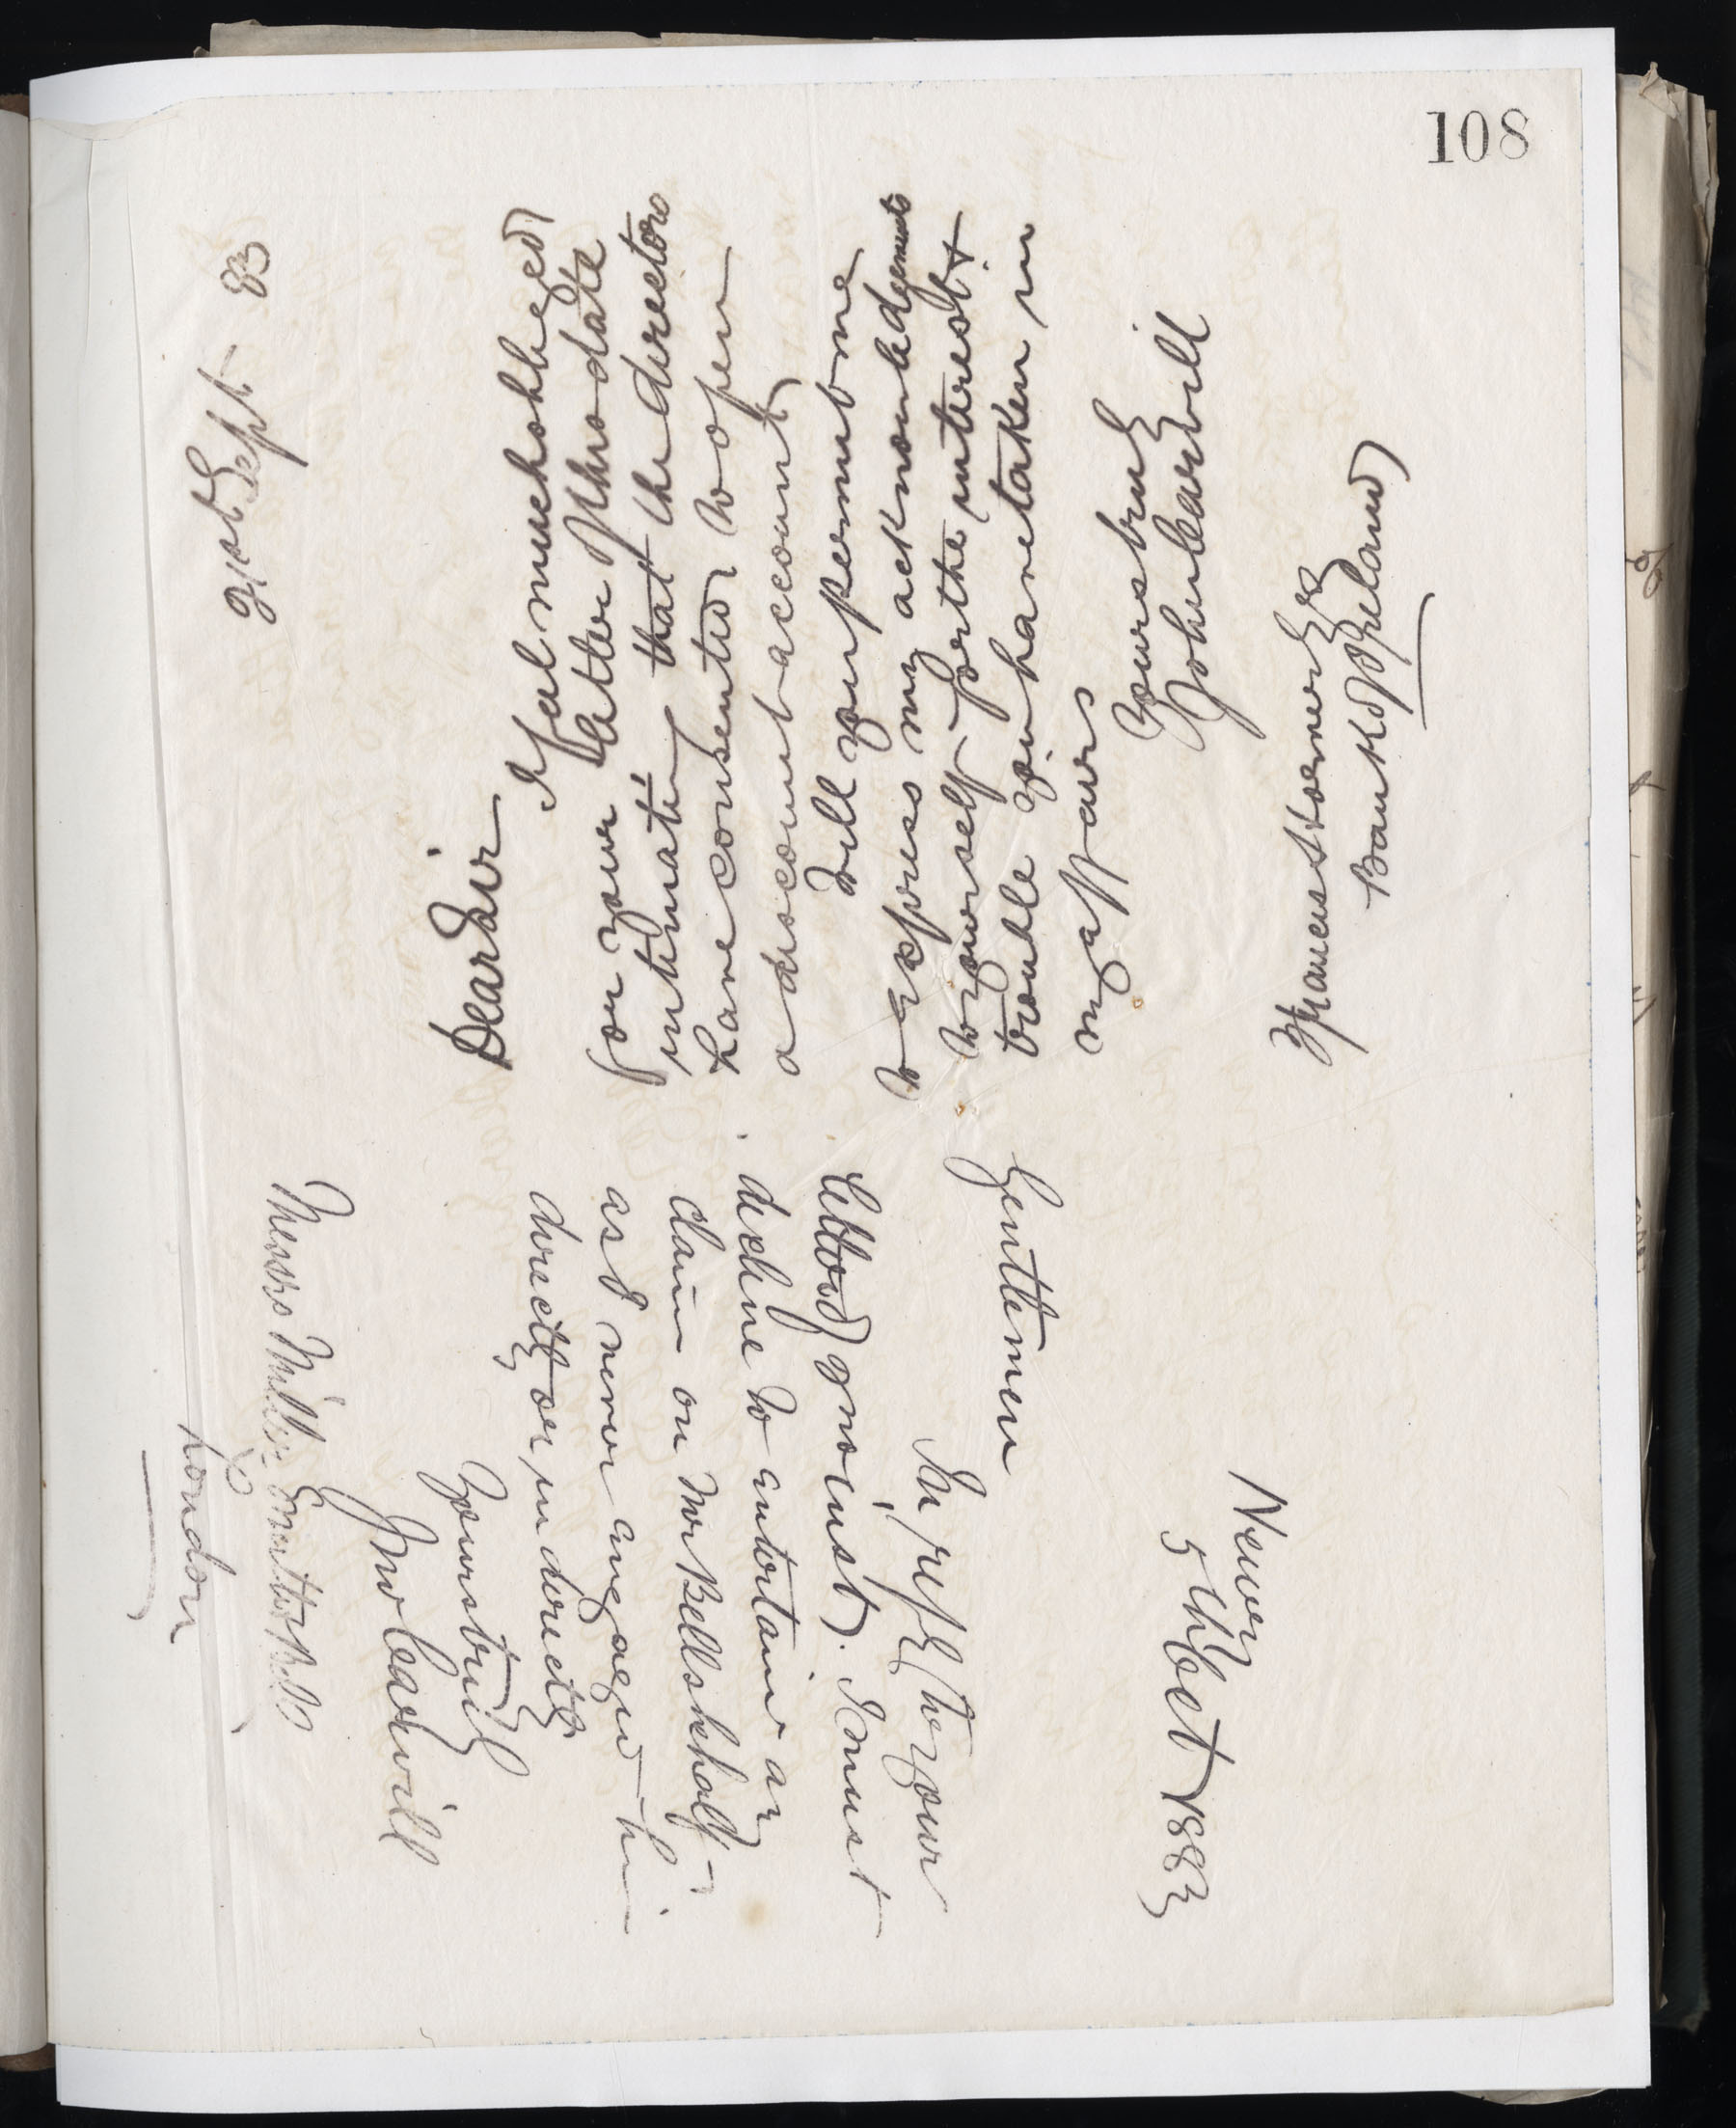 108
21st Sept 83
Dear Sir
I feel much obliged
for your letter of this date
intimating that the directors
have consented to open
a discount account
Will you permit me
to express my acknowledgements
to yourself for the interest &
trouble you have taken in
my affairs
Yours truly
John Cargill
Bank of Ireland
Newry
5th Oct 1883
Gentlemen
In reply to your
letter of instant. I must
decline to entertain any
claim on Mr Bells behalf
as I never engaged him
directly or indirectly
Yours truly
Jno Cargill
Messrs Miller
London